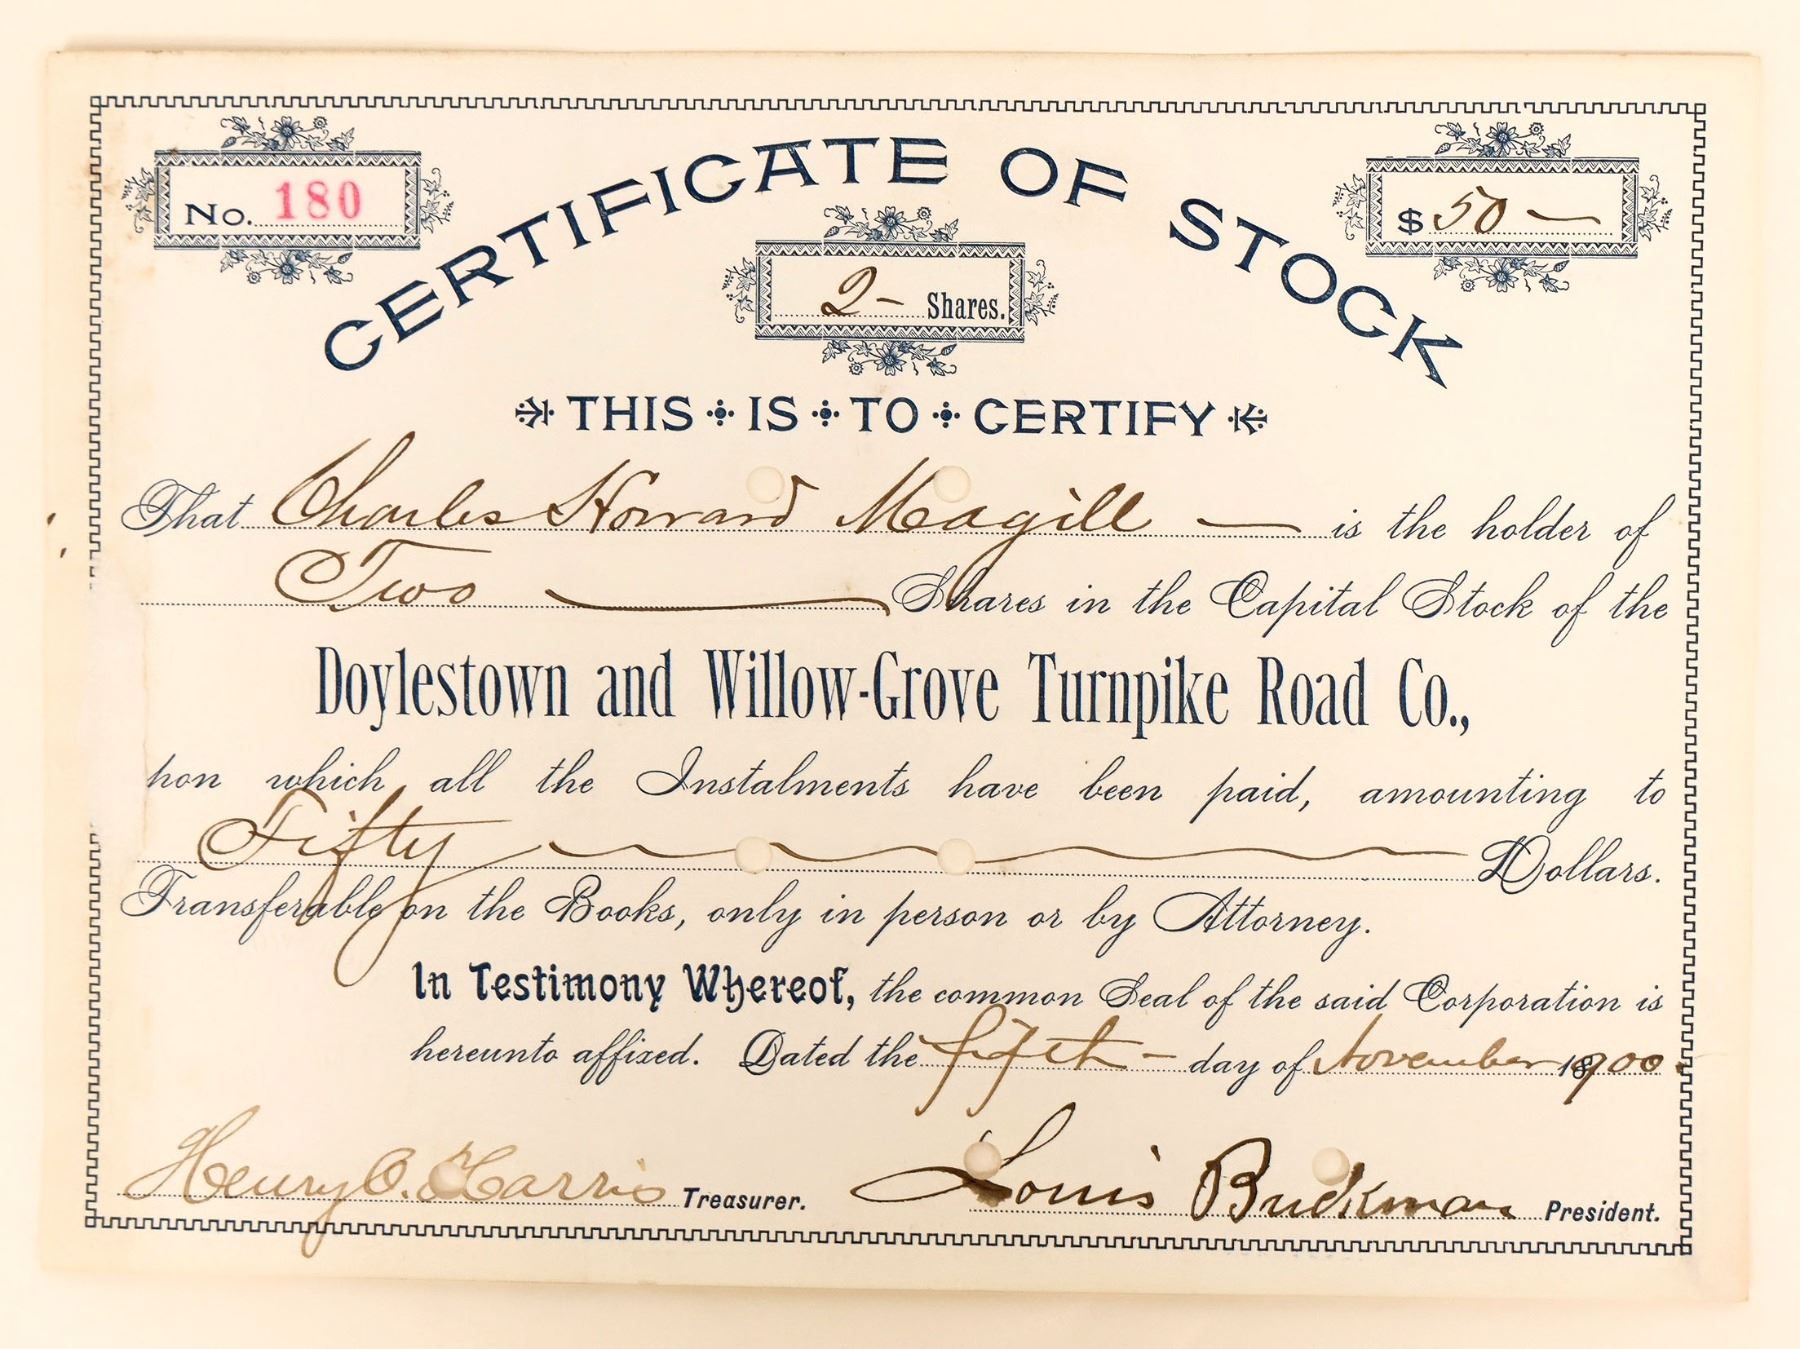 No. 180
CERTIFICATE OF STOCK
$ 50 —
2 — Shares.
THIS IS TO CERTIFY
That Charles Howard Magill — is the holder of
Two — Shares in the Capital Stock of the
Doylestown and Willow-Grove Turnpike Road Co.,
hon which all the Instalments have been paid, amounting to
Fifty Dollars.
Transferable on the Books, only in person or by Attorney.
In Testimony Whereof, the common Seal of the said Corporation is
hereunto affixed. Dated the fifth — day of November 1900.
Henry O. Harris Treasurer. Louis Buckman President.